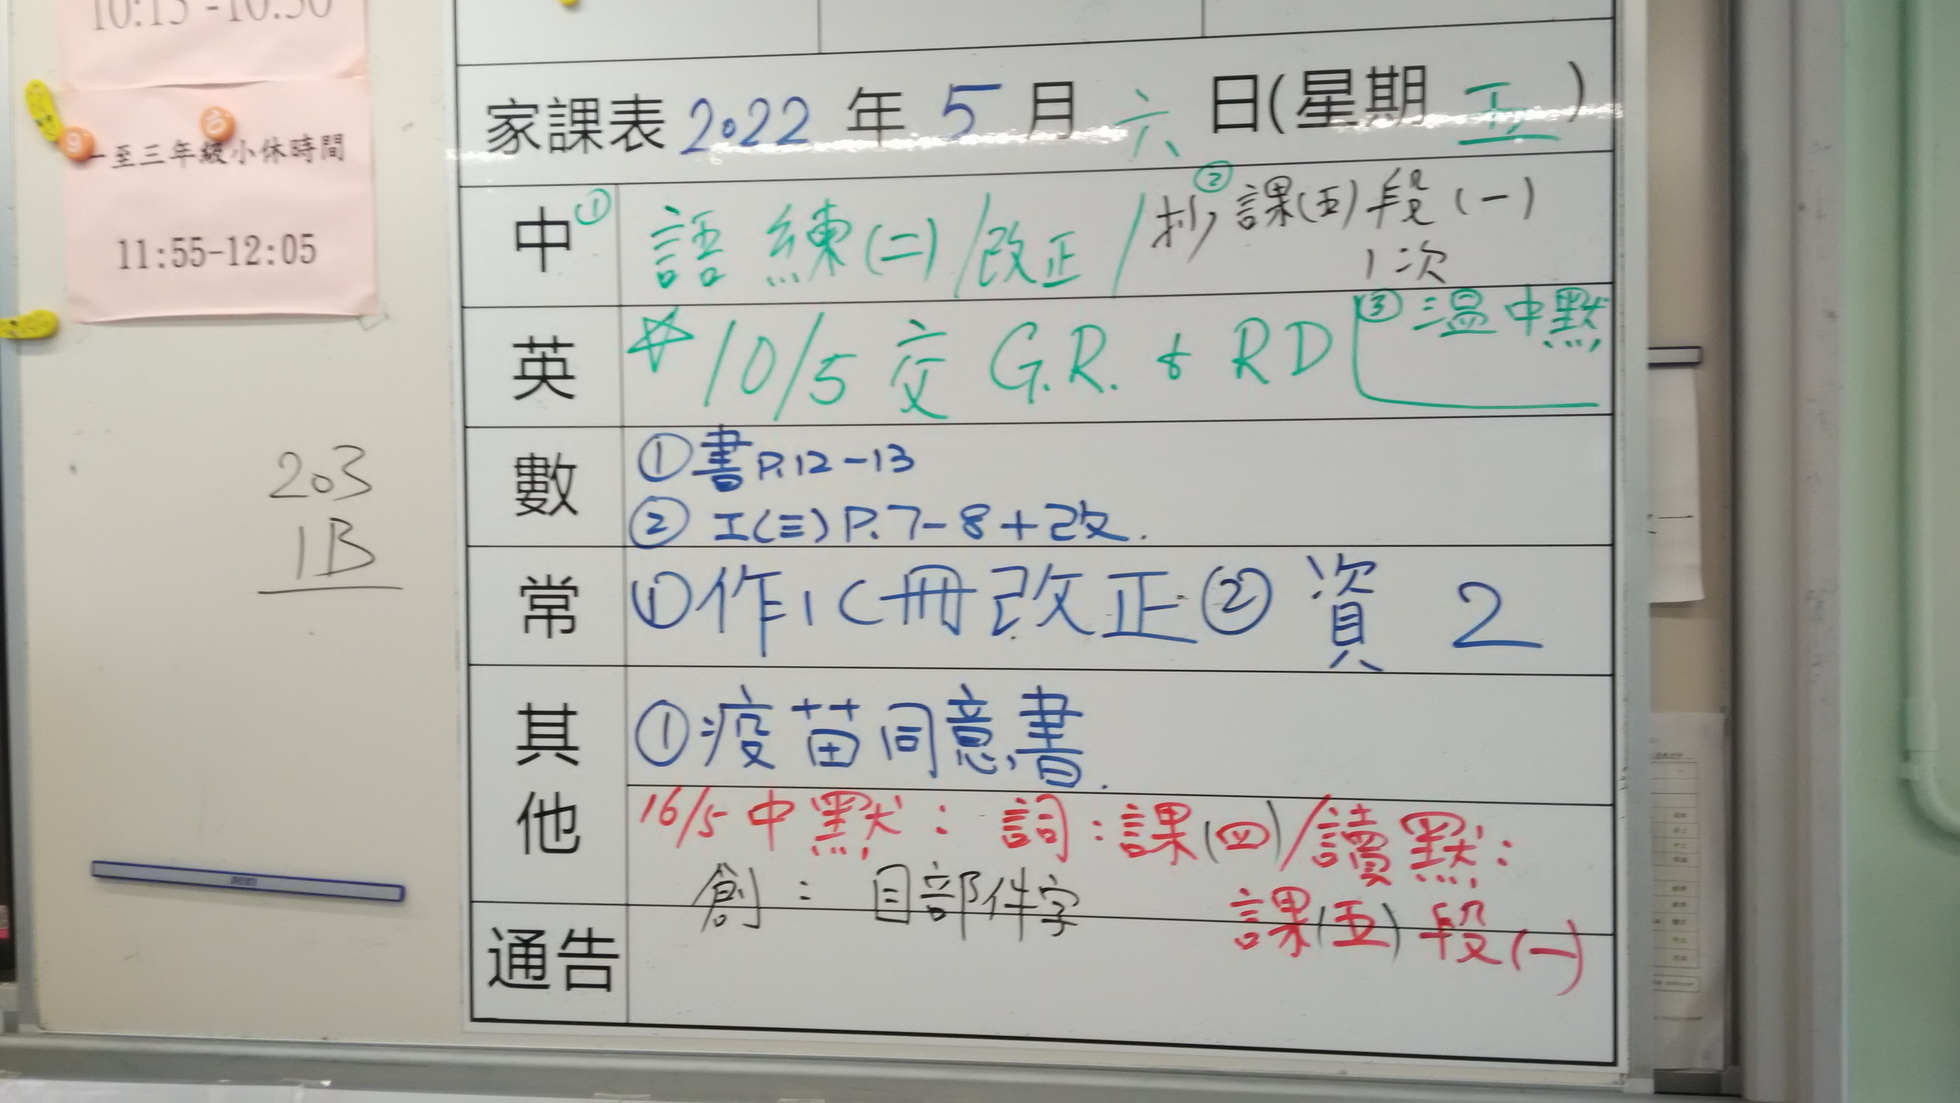 10:15-10:30
一至三年級小休時間
11:55-12:05
203
1B
家課表 2022 年 5 月 六 日(星期 五)
中 ① 語練(二)/改正/② 抄課(五)段(一)
1次
英 ☆ 10/5 交 G.R. & RD ③ 溫中默
數 ① 書 P.12-13
② 工(三) P.7-8+改.
常 ① 作1C冊改正 ② 資 2
其他 ① 疫苗同意書.
16/5 中默: 詞: 課(四)/讀默:
創: 目部件字 課(五)段(一)
通告